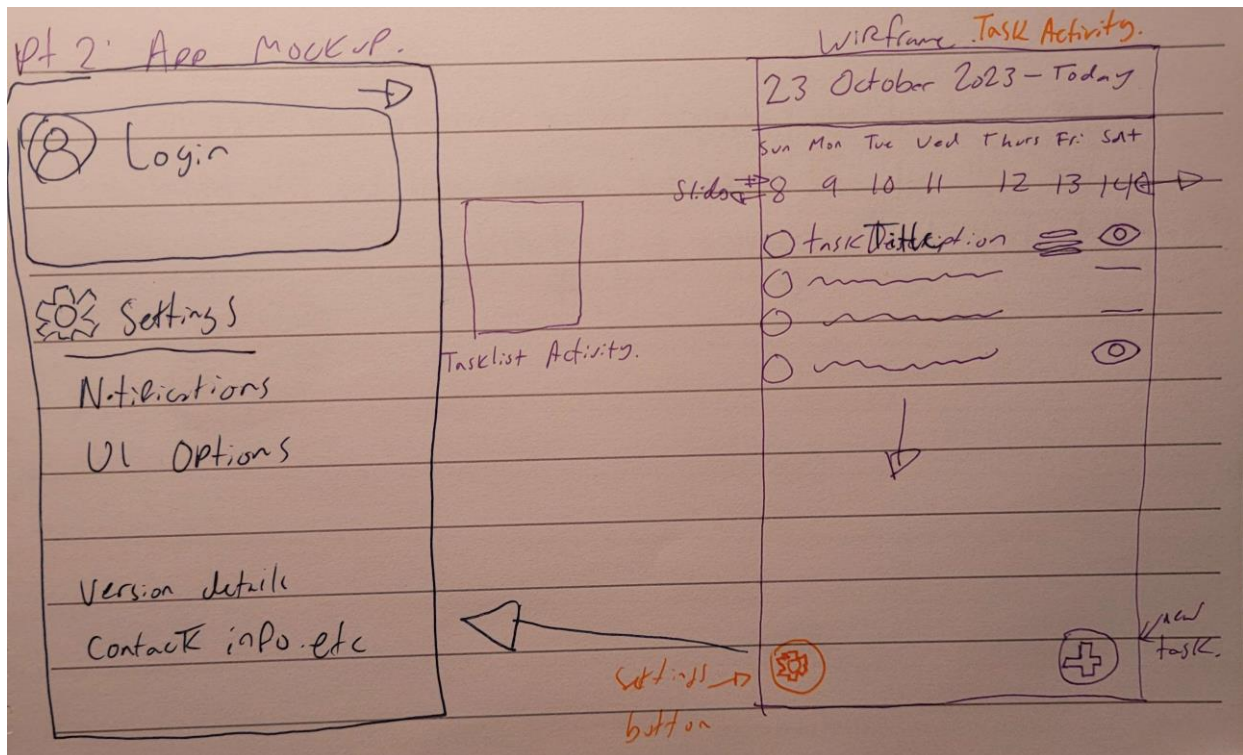 Pt 2: App Mockup.
Login
Settings
Notifications
UI Options
Version details
Contact info.etc
Tasklist Activity.
Wireframe Task Activity.
23 October 2023 - Today
Sun Mon Tue Wed Thurs Fri Sat
Slide 8 9 10 11 12 13 14
task
settings
button
new
task.